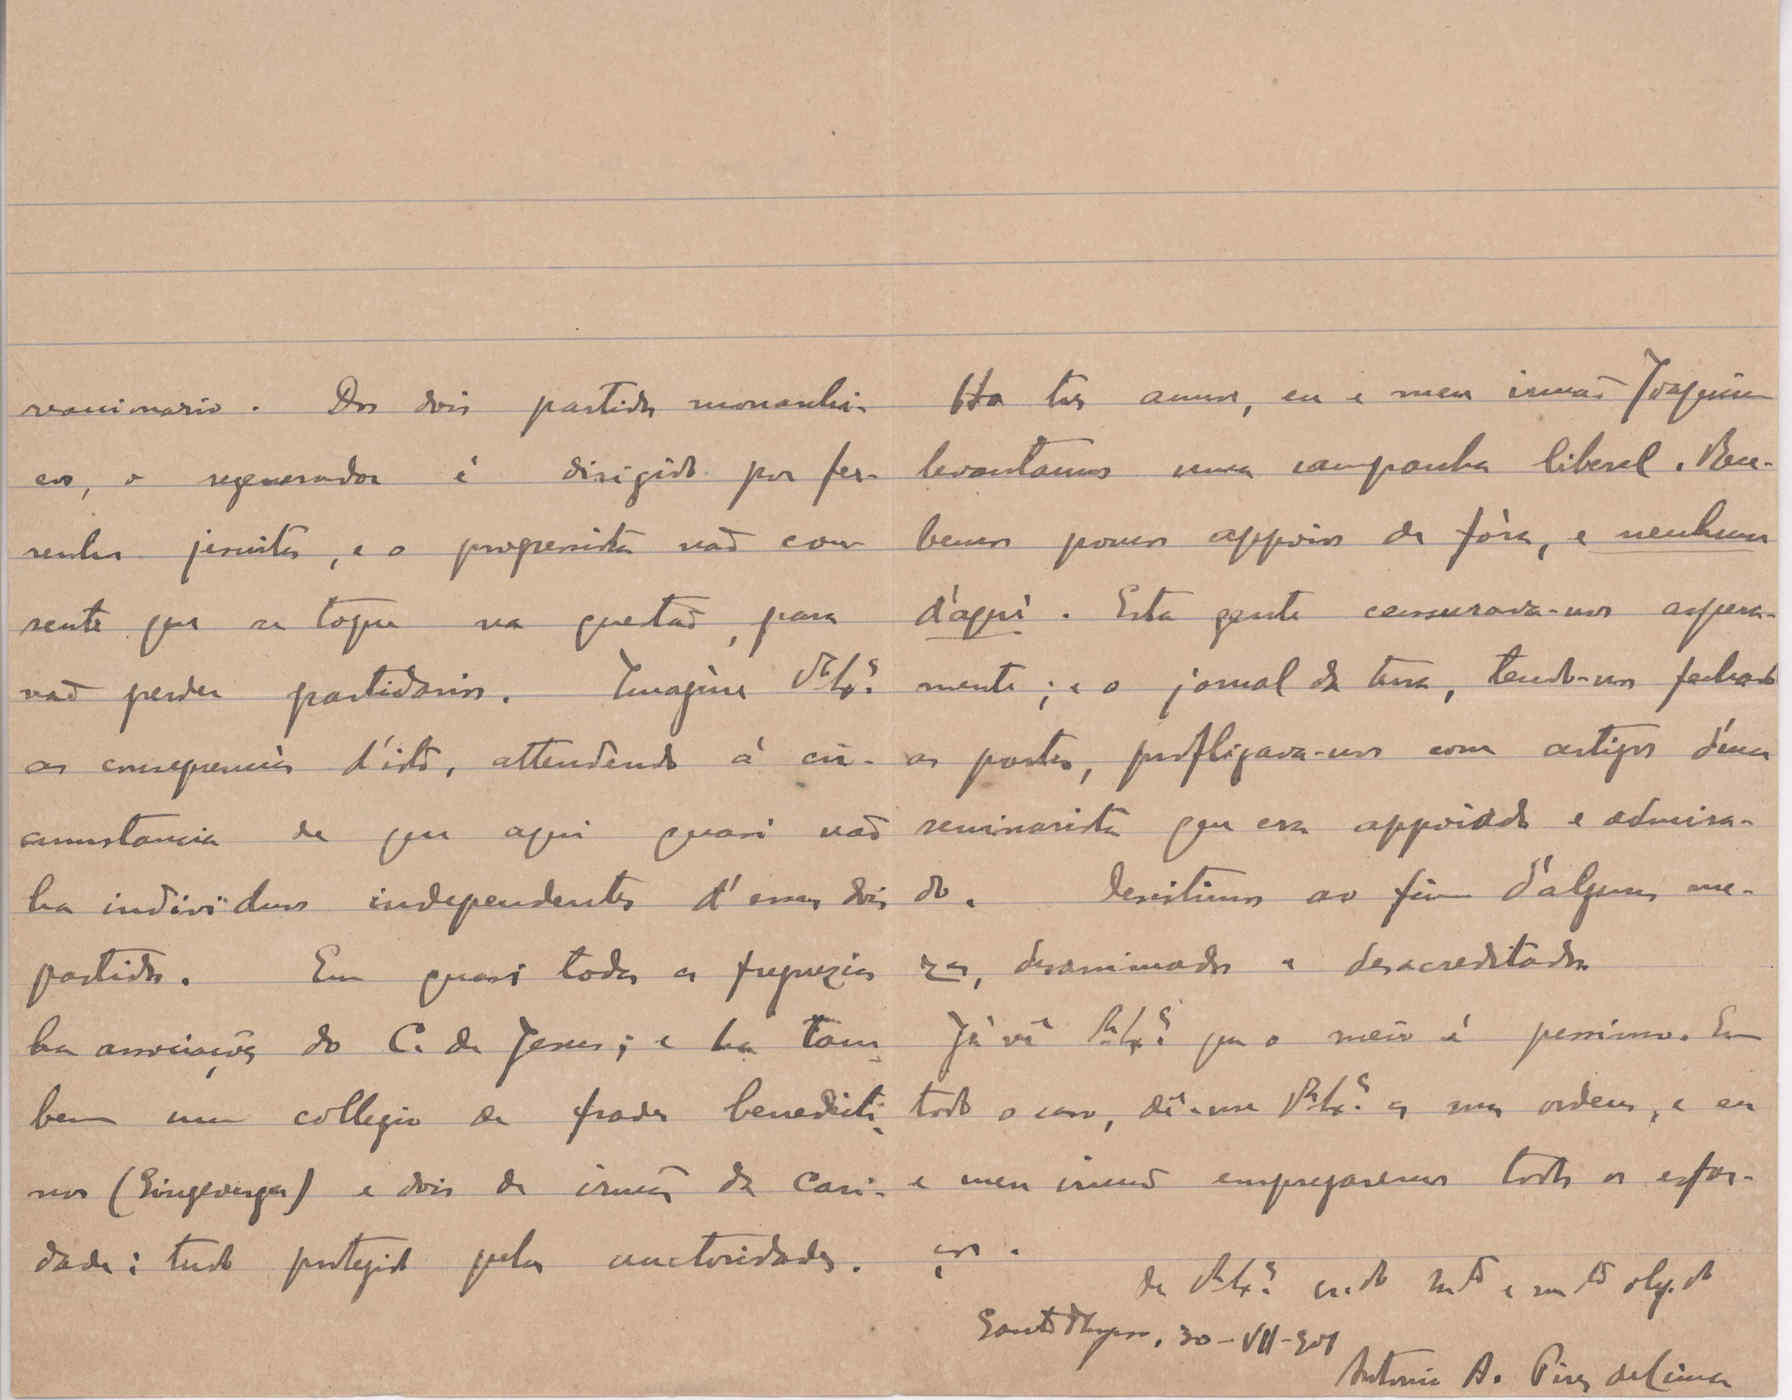 reaccionario. Dos dois partidos monarchi-
cos, o regenerador é dirigido por fer-
renhos jesuitas, e o progressista não con-
sente que se toque na questão, para
não perder partidarios. Imagine V. Ex.ª
as consequencias d'isto, attendendo á cir-
cumstancia de que aqui quasi não
ha individuos independentes d'esses dois
partidos. Em quasi todas as freguezias
ha associações do C. de Jesus; e ha tam-
bem um collegio de frades benedicti-
nos (Singeverga) e dois de irmãs da Cari-
dade: tudo protegido pelas auctoridades.
Ha tres annos, eu e meu irmão Joaquim
levantamos uma campanha liberal. Rece-
bemos poucos appoios de fóra, e nenhum
d'aqui. Esta gente censurava-nos aspera-
mente; e o jornal da terra, tendo-nos fechado
as portas, profligava-nos com artigos d'um
seminarista que era appoiado e admira-
do. Desistimos ao fim d'alguns me-
zes, desanimados e desacreditados.
Já vê V. Ex.ª que o meio é pessimo. Em
todo o caso, dê-me V. Ex.ª as suas ordens, e eu
e meu irmão empregaremos todos os esfor-
ços.
de V. Ex.ª cr.do m.to e m.to obg.do
Santo Thyrso, 30-VII-901
Antonio A. Pires de Lima